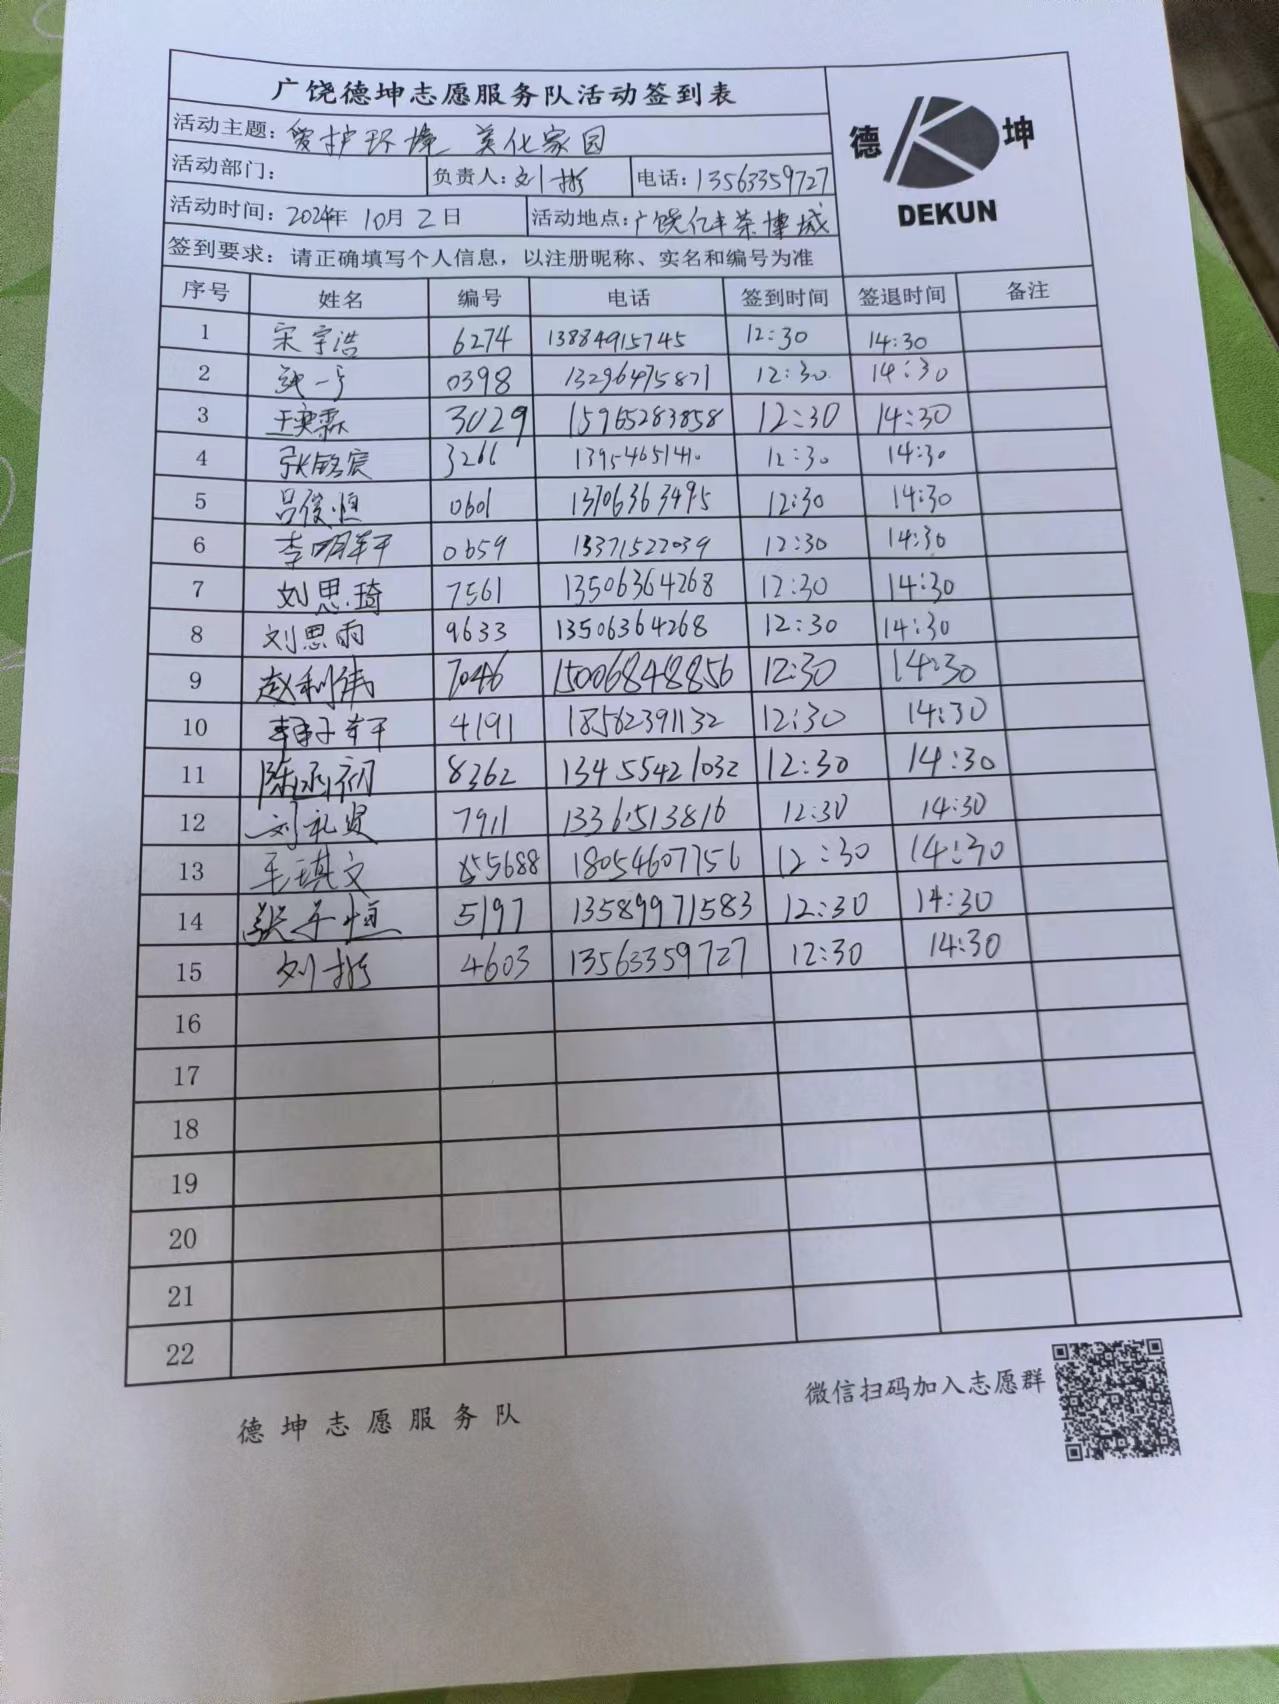 广饶德坤志愿服务队活动签到表
德 坤
DEKUN
活动主题：爱护环境 美化家园
活动部门： 负责人：刘彬 电话：13563359727
活动时间：2024年 10月 2日 活动地点：广饶亿丰茶博城
签到要求：请正确填写个人信息，以注册昵称、实名和编号为准
序号 姓名 编号 电话 签到时间 签退时间 备注
1 宋宇浩 6274 13884915745 12:30 14:30
2 0398 13296475871 12:30 14:30
3 王奕霖 3029 15965283858 12:30 14:30
4 张铭宸 3266 12:30 14:30
5 吕俊恒 0601 13706363495 12:30 14:30
6 李明轩 0659 13371522039 12:30 14:30
7 刘思琦 7561 13506364268 12:30 14:30
8 刘思雨 9633 13506364268 12:30 14:30
9 赵利伟 7046 15006848856 12:30 14:30
10 4191 18562391132 12:30 14:30
11 陈函初 8362 13455421032 12:30 14:30
12 刘礼贤 7911 13361513816 12:30 14:30
13 王琪文 18054607756 12:30 14:30
14 张子恒 5197 13589971583 12:30 14:30
15 刘彬 4603 13563359727 12:30 14:30
16
17
18
19
20
21
22
微信扫码加入志愿群
德坤志愿服务队